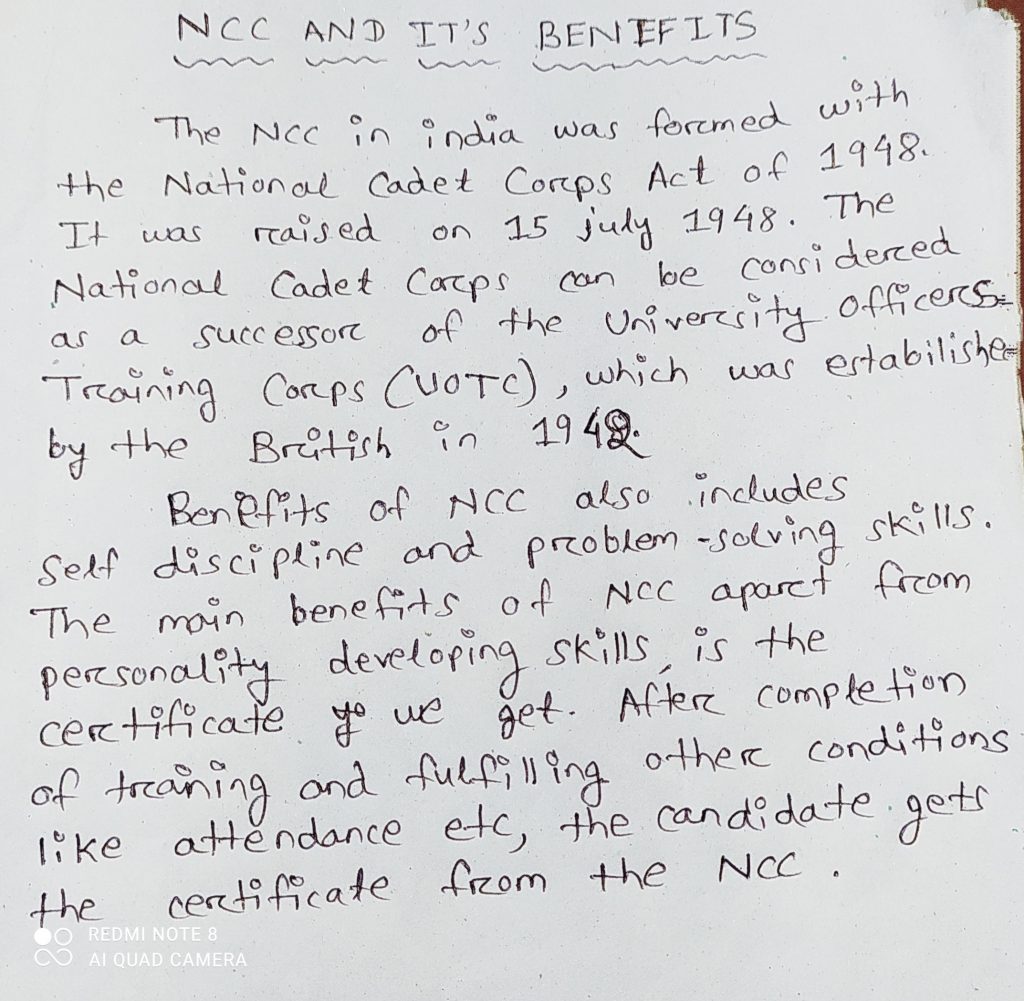 NCC AND IT'S BENEFITS
The NCC in india was formed with
the National Cadet Corps Act of 1948.
It was raised on 15 july 1948. The
National Cadet Corps can be considered
as a successor of the University Officers
Training Corps (UOTC), which was estabilishe
by the British in 1942.
Benefits of NCC also includes
Self discipline and problem-solving skills.
The main benefits of NCC apart from
personality developing skills, is the
certificate we get. After completion
of training and fulfilling other conditions
like attendance etc, the candidate gets
the certificate from the NCC.
REDMI NOTE 8
AI QUAD CAMERA